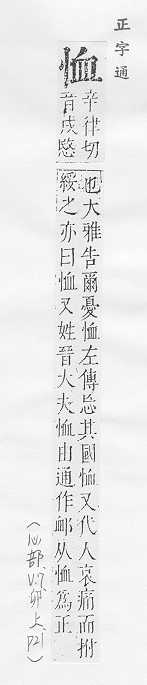 正字通
恤
辛律切
音戌愍
也大雅告爾憂恤左傳忘其國恤又代人哀痛而拊
綏之亦曰恤又姓晉大夫恤由通作卹从恤為正
(心部V.7卯上P21)